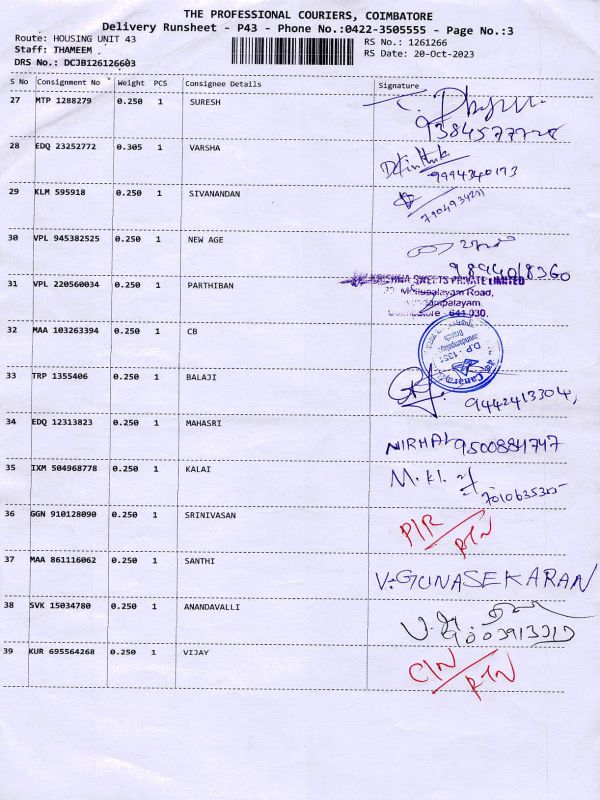 THE PROFESSIONAL COURIERS, COIMBATORE
Delivery Runsheet - P43 - Phone No.:0422-3505555 - Page No.:3
Route: HOUSING UNIT 43
RS No.: 1261266
Staff: THAMEEM .
RS Date: 20-Oct-2023
DRS No.: DCJB126126603
S No Consignment No Weight PCS Consignee Details Signature
27 MTP 1288279 0.250 1 SURESH
28 EDQ 23252772 0.305 1 VARSHA
9994340173
29 KLM 595918 0.250 1 SIVANANDAN
7904934251
30 VPL 945382525 0.250 1 NEW AGE
9894018360
31 VPL 220560034 0.250 1 PARTHIBAN
KRISHNA SWEETS PRIVATE LIMITED
Mettupalayam Road,
Coimbatore - 641 030.
32 MAA 103263394 0.250 1 CB
D.P - 1351
Canara
33 TRP 1355406 0.250 1 BALAJI
9442413304,
34 EDQ 12313823 0.250 1 MAHASRI
NIRMAL 9500884747
35 IXM 504968778 0.250 1 KALAI
M. Kl.
36 GGN 910128090 0.250 1 SRINIVASAN
P/R
RTN
37 MAA 861116062 0.250 1 SANTHI
V. GUNASEKARAN
38 SVK 15034780 0.250 1 ANANDAVALLI
39 KUR 695564268 0.250 1 VIJAY
C/N
RTN